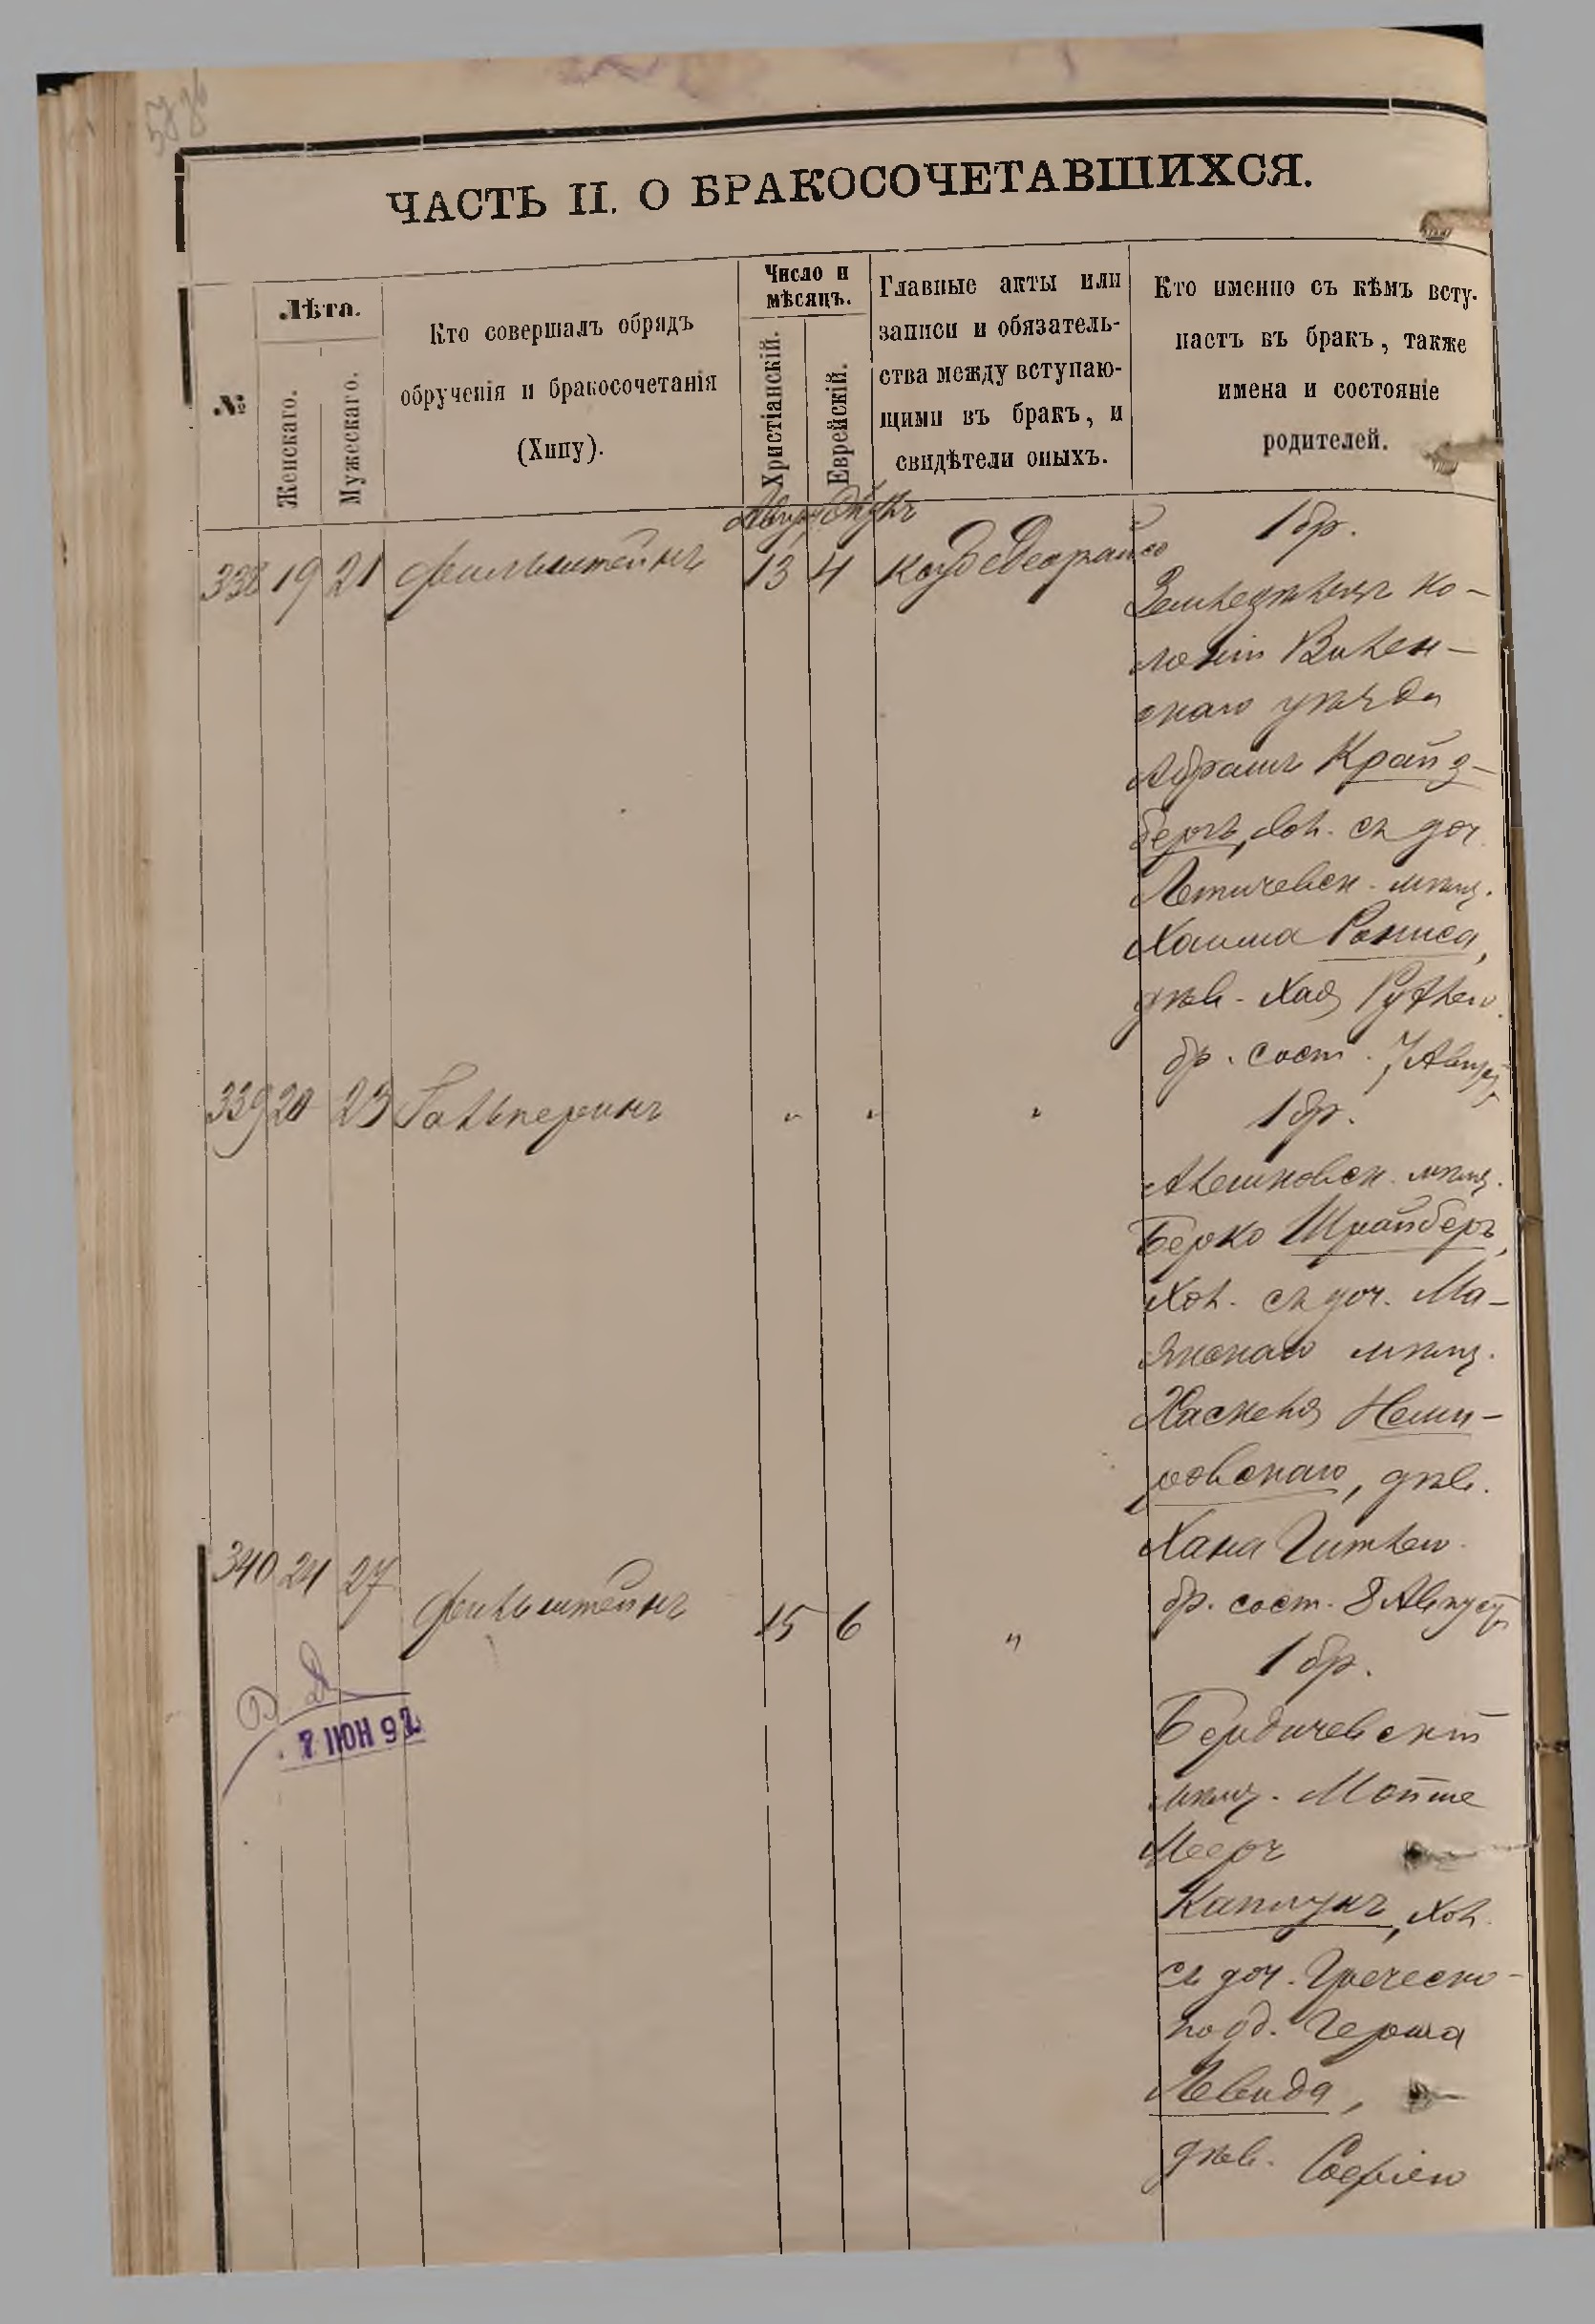 ЧАСТЬ II. О БРАКОСОЧЕТАВШИХСЯ.
№
Лѣта.
Женскаго.
Мужескаго.
Кто совершалъ обрядъ
обрученія и бракосочетанія
(Хипу).
Число и
мѣсяцъ.
Христіанскій.
Еврейскій.
Главные акты или
записи и обязатель-
ства между вступаю-
щими въ бракъ, и
свидѣтели оныхъ.
Кто именно съ кѣмъ всту-
паетъ въ бракъ, также
имена и состояніе
родителей.
338 19 21 Фильштейнъ 13 4
1 бр.
Земледѣлецъ ко-
лоніи Вилен-
скаго уѣзда
Абрамъ Крайз-
бергъ, хол. съ доч.
Летичевск. мѣщ.
Хаима Раписа,
дѣв. Хая Рухлею.
бр. сост. 7 Август
339 20 23 Гальперинъ " " "
1 бр.
Алешковск. мѣщ.
Берко Шрайберъ,
Хол. съ доч. Ма-
якскаго мѣщ.
Хаскеля Неми-
ровскаго, дѣв.
Хана Гитлею.
бр. сост. 8 Август
340 24 27 Фильштейнъ 15 6 "
1 бр.
Бердичевскій
мѣщ. Мойше
Мееръ
Каплунъ, хол.
съ доч. Греческо-
подд. Герша
Левида,
дѣв. Софіею
7 ІЮН 92